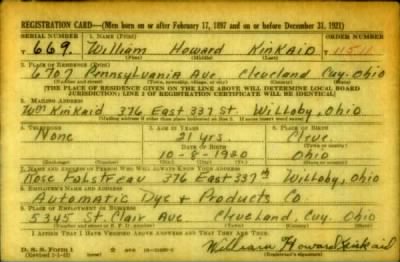 REGISTRATION CARD—(Men born on or after February 17, 1897 and on or before December 31, 1921)
SERIAL NUMBER 1. NAME (Print) ORDER NUMBER
T 669 William Howard Kinkaid 11511
(First) (Middle) (Last)
2. PLACE OF RESIDENCE (Print)
6707 Pennsylvania Ave Cleveland Cuy. Ohio
(Number and street) (Town, township, village, or city) (County) (State)
[THE PLACE OF RESIDENCE GIVEN ON THE LINE ABOVE WILL DETERMINE LOCAL BOARD
JURISDICTION; LINE 2 OF REGISTRATION CERTIFICATE WILL BE IDENTICAL]
3. MAILING ADDRESS
Wm Kinkaid 376 East 337 St. Willoby, Ohio
[Mailing address if other than place indicated on line 2. If same insert word same]
4. TELEPHONE 5. AGE IN YEARS 6. PLACE OF BIRTH
None 21 yrs. Cleve.
DATE OF BIRTH
10-8-1920 Ohio
(Exchange) (Number) (Mo.) (Day) (Yr.)
7. NAME AND ADDRESS OF PERSON WHO WILL ALWAYS KNOW YOUR ADDRESS
Rose 376 East 337th Willoby, Ohio
8. EMPLOYER'S NAME AND ADDRESS
Automatic Dye & Products Co
9. PLACE OF EMPLOYMENT OR BUSINESS
5345 St. Clair Ave Cleveland, Cuy. Ohio
(Number and street or R. F. D. number) (Town) (County) (State)
I AFFIRM THAT I HAVE VERIFIED ABOVE ANSWERS AND THAT THEY ARE TRUE.
D. S. S. Form 1
William Howard Kinkaid
(Registrant's signature)